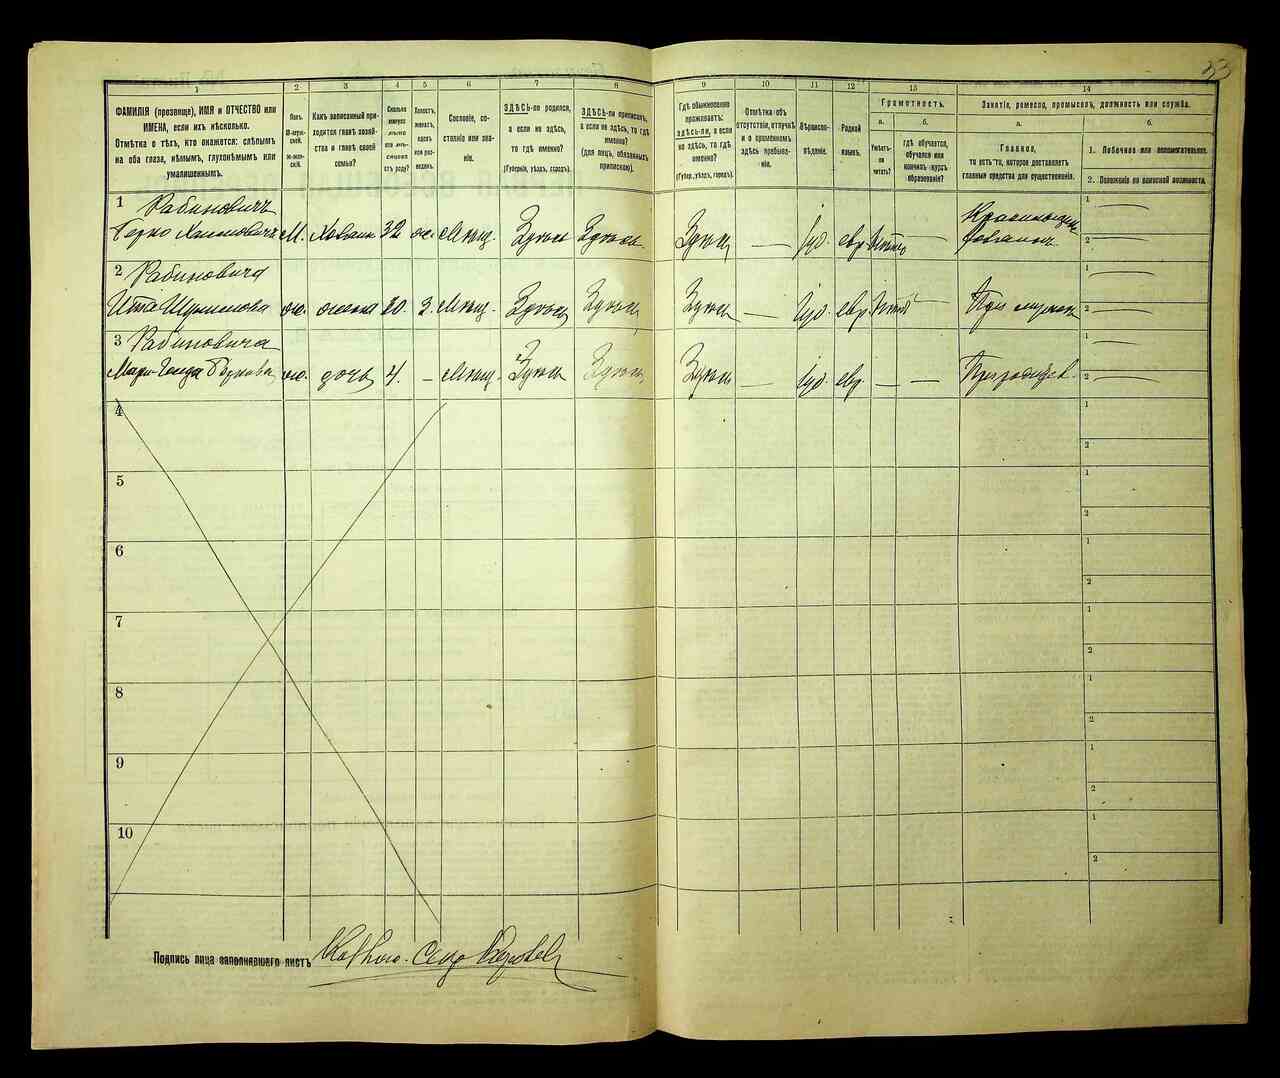 33
1 2 3 4 5 6 7 8 9 10 11 12 13 14
ФАМИЛІЯ (прозвище), ИМЯ и ОТЧЕСТВО или
ИМЕНА, если ихъ нѣсколько.
Отмѣтка о тѣхъ, кто окажется: слѣпымъ
на оба глаза, нѣмымъ, глухонѣмымъ или
умалишеннымъ.
Полъ.
М-муж-
скій.
Ж-жен-
скій.
Какъ записанный при-
ходится главѣ хозяй-
ства и главѣ своей
семьи?
Сколько
минуло
лѣтъ
или мѣ-
сяцевъ
отъ роду?
Холостъ,
женатъ,
вдовъ
или раз-
веденъ.
Сословіе, со-
стояніе или зва-
ніе.
ЗДѢСЬ-ли родился,
а если не здѣсь,
то гдѣ именно?
(Губернія, уѣздъ, городъ).
ЗДѢСЬ-ли приписанъ,
а если не здѣсь, то гдѣ
именно?
(для лицъ, обязанныхъ
припискою).
Гдѣ обыкновенно
проживаетъ:
ЗДѢСЬ-ли, а если
не здѣсь, то гдѣ
именно?
(Губер., уѣздъ, городъ).
Отмѣтка объ
отсутствіи, отлучкѣ
и о временномъ
здѣсь пребыва-
ніи.
Вѣроиспо-
вѣданіе.
Родной
языкъ.
Грамотность.
а. б.
Умѣетъ-
ли
читать?
гдѣ обучается,
обучался или
кончилъ курсъ
образованія?
Занятіе, ремесло, промыселъ, должность или служба.
а. б.
Главное,
то есть то, которое доставляетъ
главныя средства для существованія.
1. Побочное или вспомогательное.
2. Положеніе по воинской повинности.
1 Рабиновичъ
Берко Хаимовичъ М. Хозяинъ 32 ж. Мѣщ. Здѣсь Здѣсь Здѣсь — Іуд. евр. —
1 —
2 —
2 Рабиновича
Ита Шумилова ж. жена 30. З. Мѣщ. Здѣсь Здѣсь Здѣсь — Іуд. евр. — При мужѣ
1 —
2 —
3 Рабиновича
ж. дочь 4. — Мѣщ. Здѣсь Здѣсь Здѣсь — Іуд. евр. — — При родител.
1 —
2 —
4
1
2
5
1
2
6
1
2
7
1
2
8
1
2
9
1
2
10
1
2
Подпись лица заполнявшего листъ